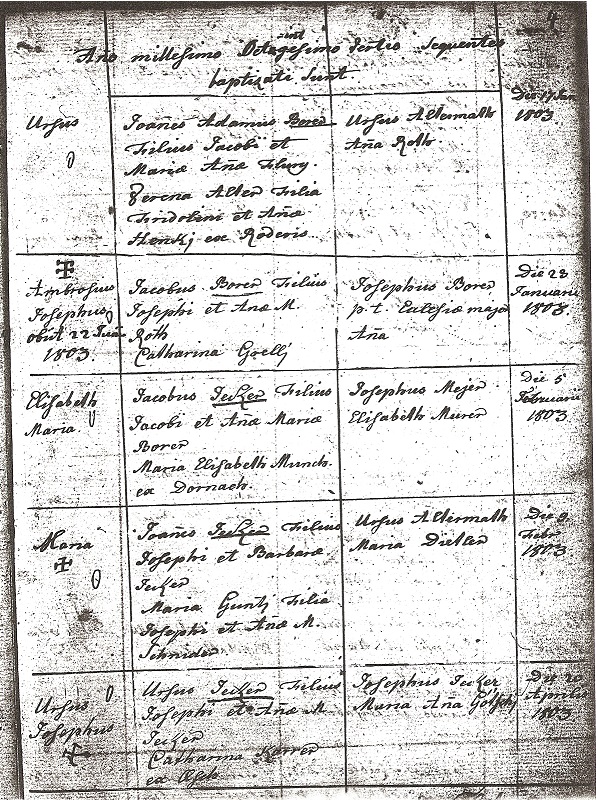 Año millesimo Octingesimo Tertio Sequentes
baptizati sunt
Ursus
Joañes Adamus Borer
Filius Jacobi et
Mariæ Añæ Flury.
Verena Alter Filia
Fridolini et Añæ
Henkj ex Roderis
Ursus Altermath
Aña Roth
1803
Ambrosius
Josephus
obiit 22 Juni
1803
Jacobus Borer Filius
Josephi et Anæ M.
Roth
Catharina Grellj
Josephus Borer
p. t.
Aña
Die 23
Januarii
1803
Elisabeth
Maria
Jacobus Jecker Filius
Jacobi et Añæ Mariæ
Borer
Maria Elisabeth Munch
ex Dornach
Josephus Mejer
Elisabeth Murer
Die 5
Februarii
1803
Maria
Joañes Jecker Filius
Josephi et Barbaræ
Jecker
Maria Guntj Filia
Josephi et Anæ M.
Schnider
Ursus Altermath
Maria Dietler
Die 9
Febr
1803
Ursus
Josephus
Ursus Jecker Filius
Josephi et Añæ M
Jecker
Catharina Karrer
ex Esch
Josephus Jecker
Maria Aña
Die 20
Aprilis
1803